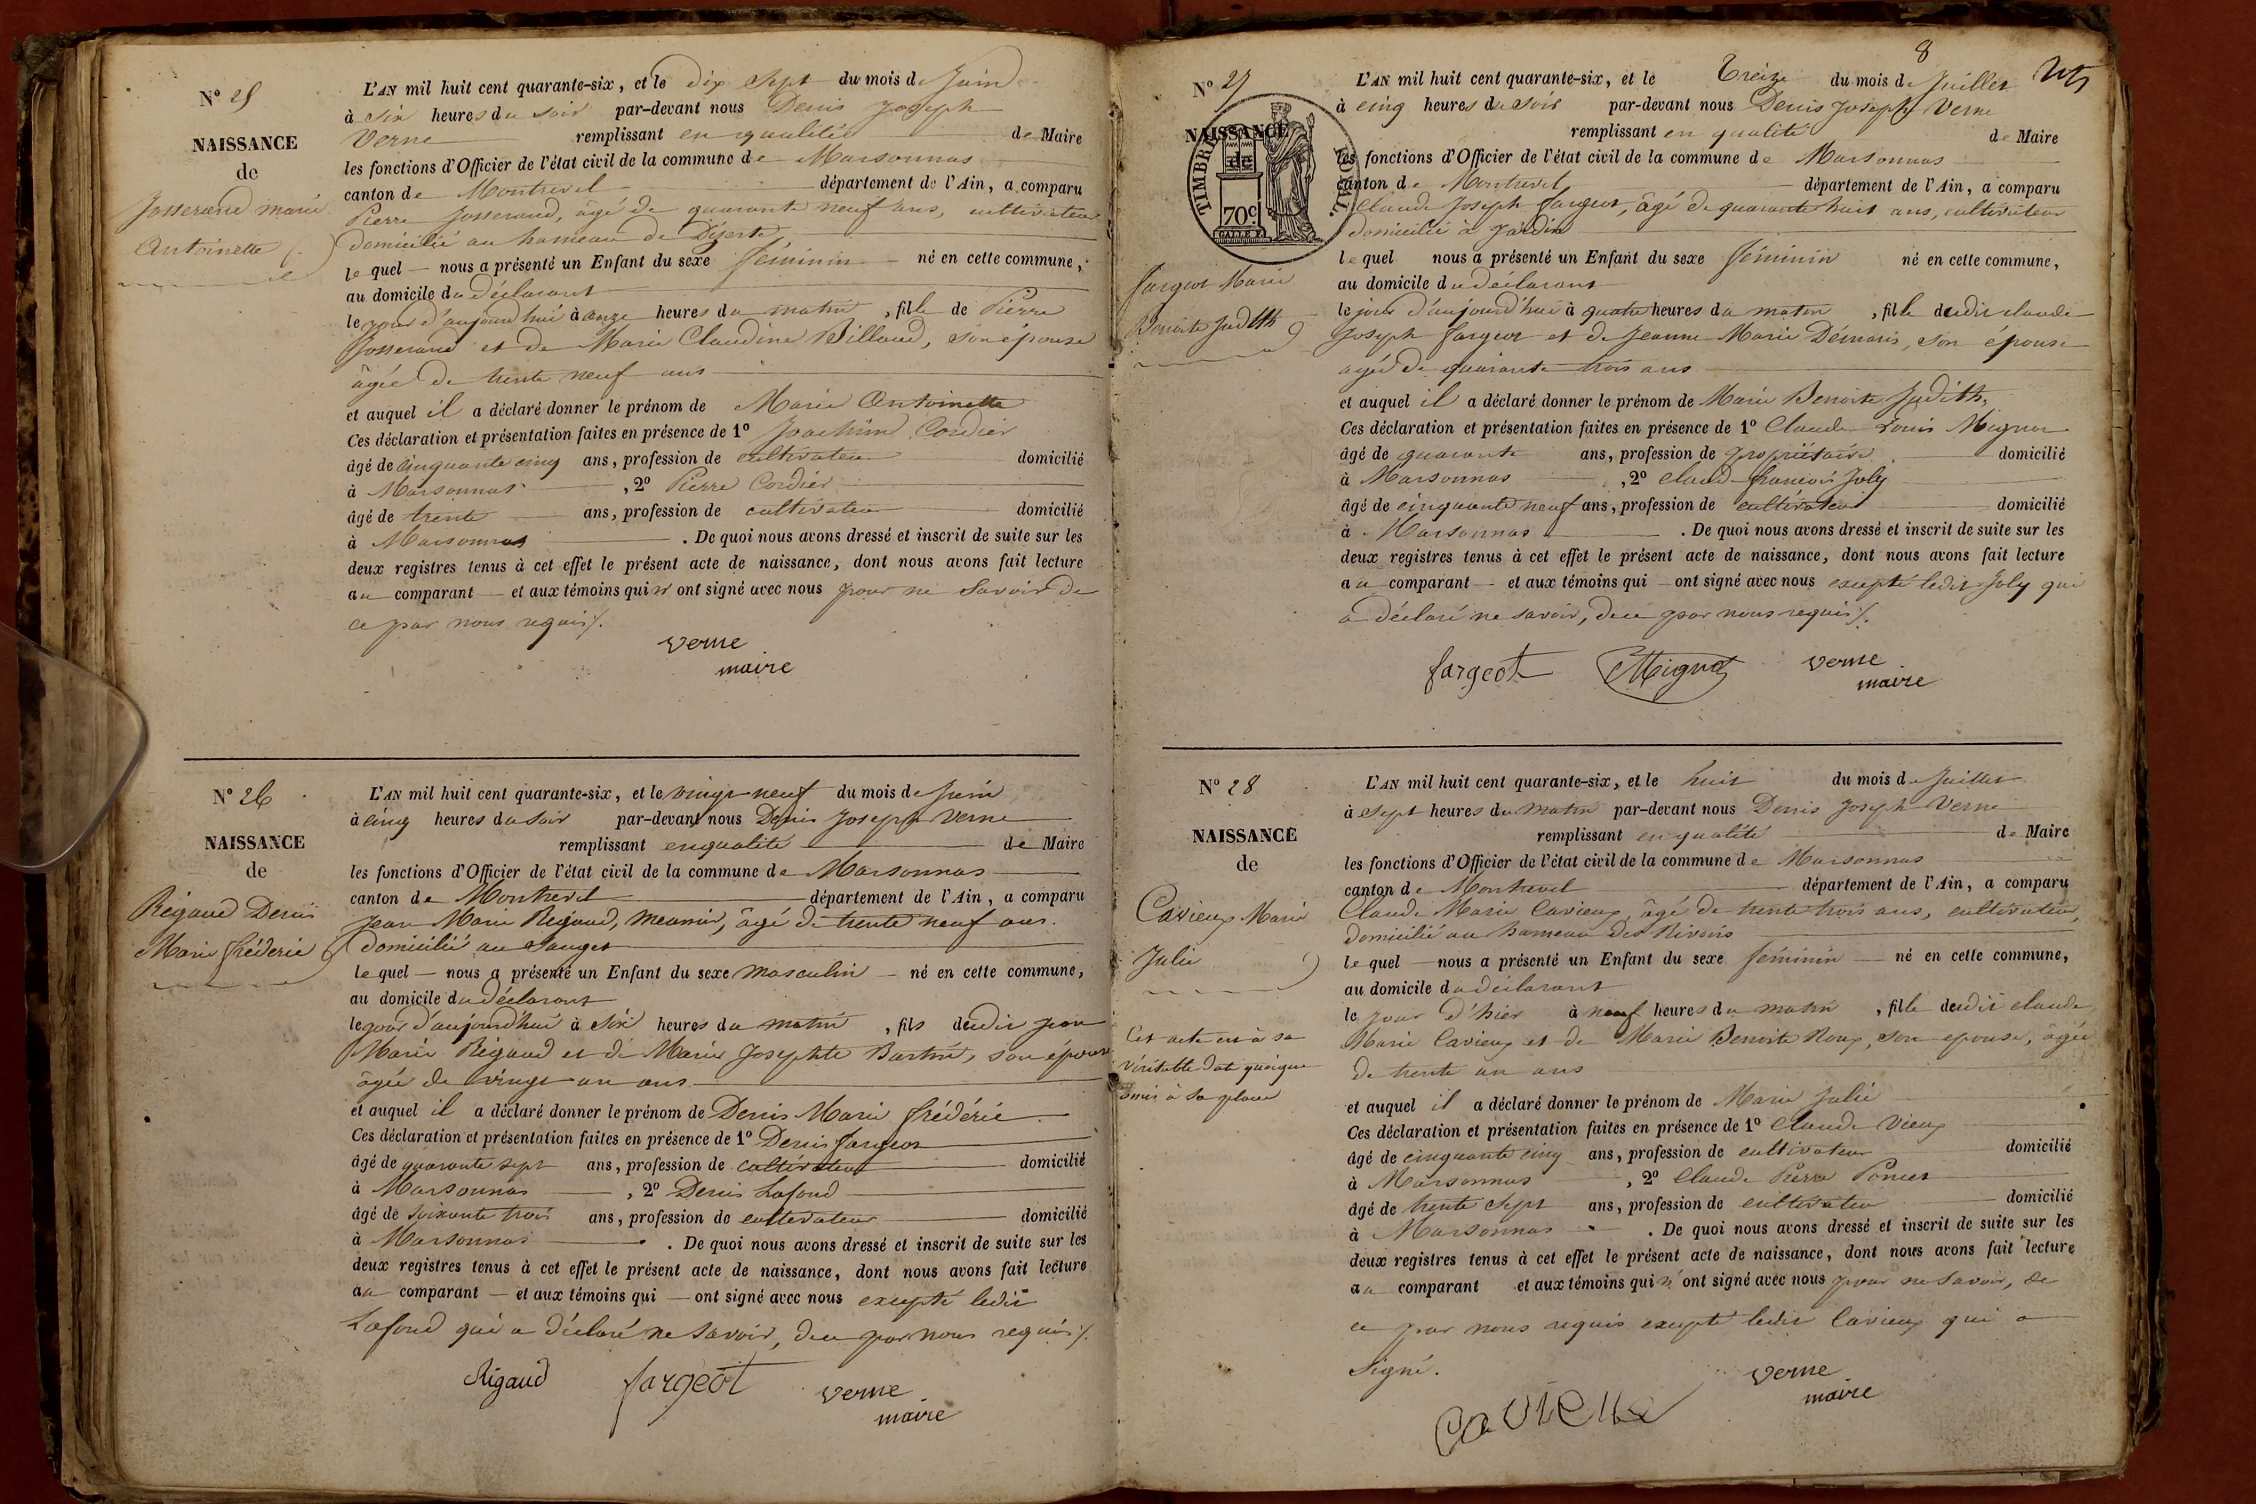 N° 25
NAISSANCE
de
Josserand marie
Antoinette
L'AN mil huit cent quarante-six, et le dix Sept du mois de Juin
à six heures du soir par-devant nous Denis Joseph
Verne remplissant en qualité de Maire
les fonctions d'Officier de l'état civil de la commune de Marsonnas
canton de Montrevel département de l'Ain, a comparu
Pierre Josserand, âgé de quarante neuf ans, cultivateur
domicilié au hameau de Déserte
le quel nous a présenté un Enfant du sexe féminin né en cette commune,
au domicile du déclarant
le jour d'aujourd'hui à onze heures du matin, fille de Pierre
Josserand et de Marie Claudine Billoud, son épouse
âgée de trente neuf ans
et auquel il a déclaré donner le prénom de Marie Antoinette
Ces déclaration et présentation faites en présence de 1° Joachim Cordier
âgé de cinquante cinq ans, profession de cultivateur domicilié
à Marsonnas, 2° Pierre Cordier
âgé de trente ans, profession de cultivateur domicilié
à Marsonnas. De quoi nous avons dressé et inscrit de suite sur les
deux registres tenus à cet effet le présent acte de naissance, dont nous avons fait lecture
au comparant et aux témoins qui n'ont signé avec nous pour ne Savoir de
ce par nous requis /.
verne
maire
N° 26
NAISSANCE
de
Rigaud Denis
Marie fréderic
L'AN mil huit cent quarante-six, et le vingt neuf du mois de Juin
à cinq heures du soir par-devant nous Denis Joseph Verne
remplissant en qualité de Maire
les fonctions d'Officier de l'état civil de la commune de Marsonnas
canton de Montrevel département de l'Ain, a comparu
Jean Marie Rigaud, meunier, âgé de trente neuf ans.
domicilié au Sauget
le quel nous a présenté un Enfant du sexe masculin né en cette commune,
au domicile du déclarant
le jour d'aujourd'hui à six heures du matin, fils dudit jean
Marie Rigaud et de Marie Josephte Bastin, son épouse
âgée de vingt un ans
et auquel il a déclaré donner le prénom de Denis Marie frédéric
Ces déclaration et présentation faites en présence de 1° Denis fargeot
âgé de quarante sept ans, profession de cultivateur domicilié
à Marsonnas, 2° Denis Lafond
âgé de soixante trois ans, profession de cultivateur domicilié
à Marsonnas. De quoi nous avons dressé et inscrit de suite sur les
deux registres tenus à cet effet le présent acte de naissance, dont nous avons fait lecture
au comparant et aux témoins qui ont signé avec nous excepté ledit
Lafond qui a déclaré ne Savoir, de ce par nous requis /.
Rigaud fargeot verne
maire
8
N° 27
NAISSANCE
de
TIMBRE ROYAL
70c
fargeot Marie
Benoite Judith
L'AN mil huit cent quarante-six, et le Treize du mois de Juillet
à cinq heures du soir par-devant nous Denis Joseph Verne
remplissant en qualité de Maire
les fonctions d'Officier de l'état civil de la commune de Marsonnas
canton de Montrevel département de l'Ain, a comparu
Claude Joseph fargeot, âgé de quarante huit ans, cultivateur
domicilié à Jardin
le quel nous a présenté un Enfant du sexe féminin né en cette commune,
au domicile du déclarant
le jour d'aujourd'hui à quatre heures du matin, fille dudit claude
Joseph fargeot et de Jeanne Marie Démaris, son épouse
agée de quarante trois ans
et auquel il a déclaré donner le prénom de Marie Benoite Judith,
Ces déclaration et présentation faites en présence de 1° Claude Louis Mignot
âgé de quarante ans, profession de propriétaire domicilié
à Marsonnas, 2° Claude françois Joly
âgé de cinquante neuf ans, profession de cultivateur domicilié
à Marsonnas. De quoi nous avons dressé et inscrit de suite sur les
deux registres tenus à cet effet le présent acte de naissance, dont nous avons fait lecture
au comparant et aux témoins qui ont signé avec nous excepté ledit Joly qui
a déclaré ne savoir, de ce par nous requis /.
fargeot Mignot verne
maire
N° 28
NAISSANCE
de
Cavieux Marie
Julie
Cet acte est à sa
véritable date quoique
omis à sa place
L'AN mil huit cent quarante-six, et le huit du mois de Juillet
à sept heures du matin par-devant nous Denis Joseph Verne
remplissant en qualité de Maire
les fonctions d'Officier de l'état civil de la commune de Marsonnas
canton de Montrevel département de l'Ain, a comparu
Claude Marie Cavieux, âgé de trente trois ans, cultivateur,
domicilié au hameau des Rivoirs
le quel nous a présenté un Enfant du sexe féminin né en cette commune,
au domicile du déclarant
le jour d'hier à neuf heures du matin, fille dudit claude
Marie Cavieux et de Marie Benoite Roux, son epouse, âgée
de trente un ans
et auquel il a déclaré donner le prénom de Marie Julie
Ces déclaration et présentation faites en présence de 1° Claude Vieux
âgé de cinquante cinq ans, profession de cultivateur domicilié
à Marsonnas, 2° Claude Pierre Poncet
âgé de trente sept ans, profession de cultivateur domicilié
à Marsonnas. De quoi nous avons dressé et inscrit de suite sur les
deux registres tenus à cet effet le présent acte de naissance, dont nous avons fait lecture
au comparant et aux témoins qui n'ont signé avec nous pour ne Savoir, de
ce par nous requis excepté ledit Cavieux qui a
Signé.
Cavieux verne
maire